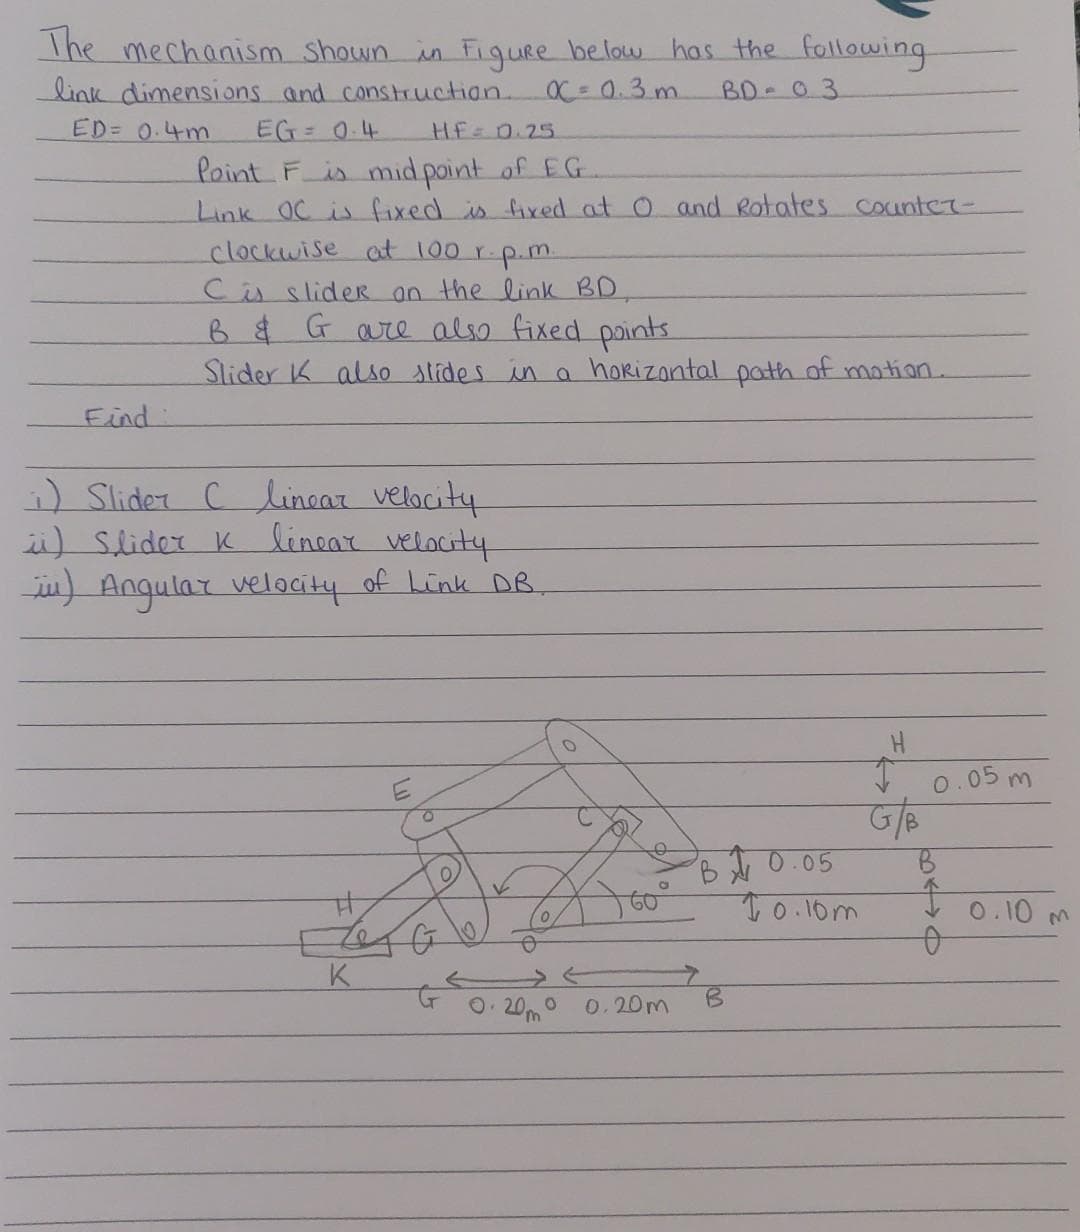 The mechanism shown in Figure below has the following
link dimensions and construction. OC = 0.3 m BD = 0.3
ED = 0.4m EG = 0.4 HF = 0.25
Point F is midpoint of EG.
Link OC is fixed is fixed at O and Rotates counter-
clockwise at 100 r.p.m.
C is slider on the link BD,
B & G are also fixed points
Slider K also slides in a horizontal path of motion.
Find:
i) Slider C linear velocity
ii) Slider K linear velocity
iii) Angular velocity of Link DB.
H
0.05 m
G/B
E
C
B 0.05
B
60°
0.10m
0.10 m
H
G
O
O
K
G 0.20m O 0.20m B